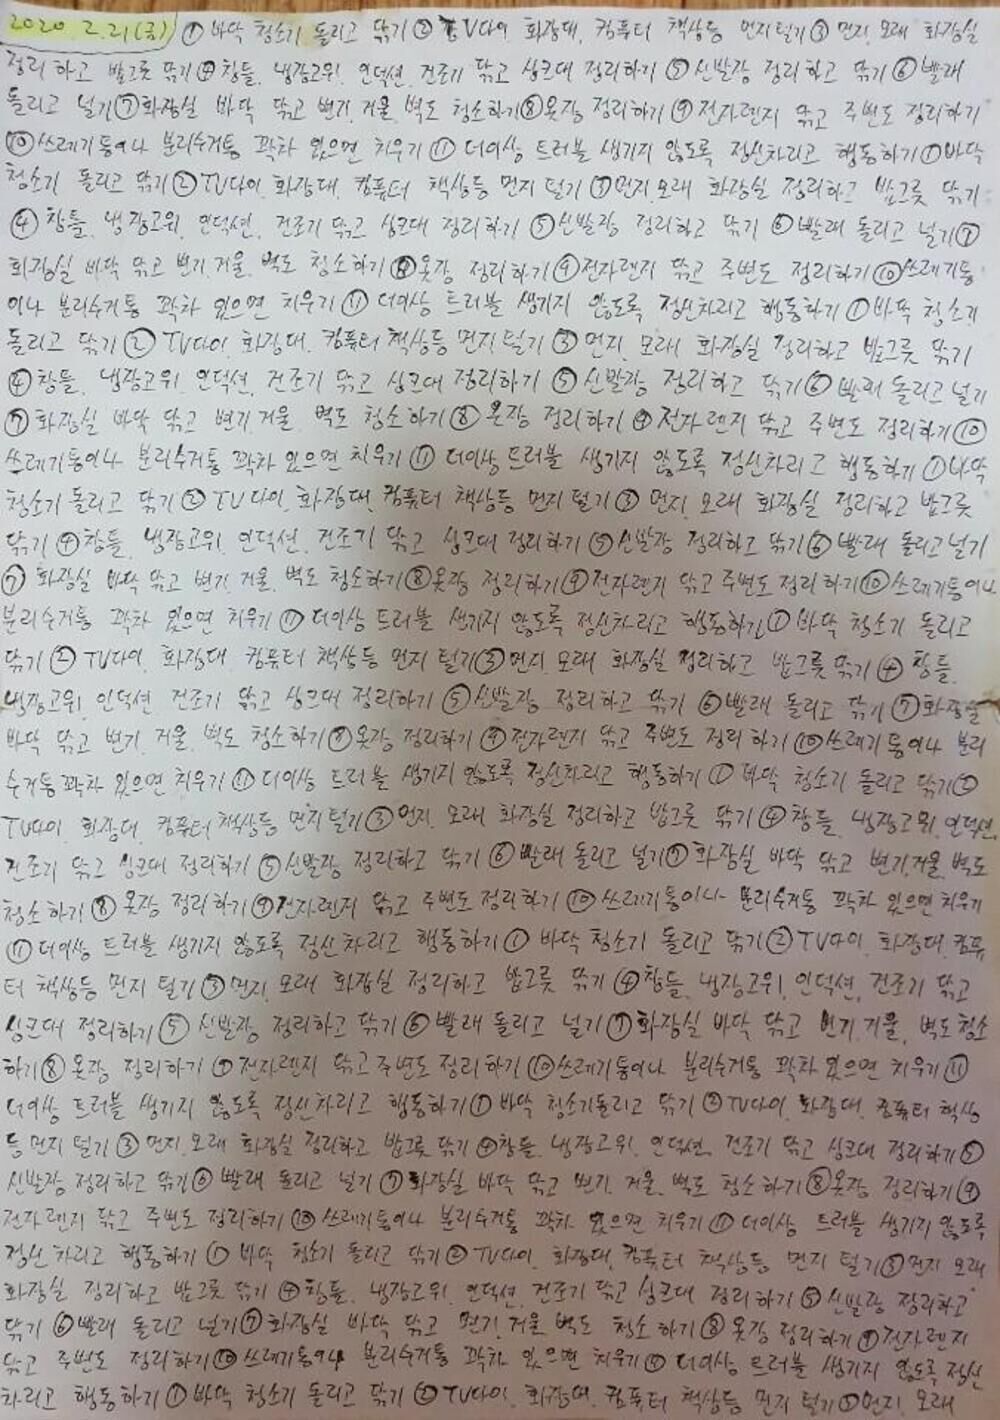 2020 2.21(금) ① 바닥 청소기 돌리고 닦기 ② TV다이 화장대, 컴퓨터 책상등 먼지털기 ③ 먼지, 모래 화장실
정리하고 밥그릇 닦기 ④ 창틀, 냉장고위, 인덕션, 건조기 닦고 싱크대 정리하기 ⑤ 신발장 정리하고 닦기 ⑥ 빨래
돌리고 널기 ⑦ 화장실 바닥 닦고 변기, 거울, 벽도 청소하기 ⑧ 옷장 정리하기 ⑨ 전자렌지 닦고 주변도 정리하기
⑩ 쓰레기통이나 분리수거통 꽉차 있으면 치우기 ⑪ 더이상 트러블 생기지 않도록 정신차리고 행동하기 ① 바닥
청소기 돌리고 닦기 ② TV다이, 화장대, 컴퓨터 책상등 먼지 털기 ③ 먼지, 모래 화장실 정리하고 밥그릇 닦기
④ 창틀, 냉장고위, 인덕션, 건조기 닦고 싱크대 정리하기 ⑤ 신발장 정리하고 닦기 ⑥ 빨래 돌리고 널기 ⑦
화장실 바닥 닦고 변기, 거울, 벽도 청소하기 ⑧ 옷장 정리하기 ⑨ 전자렌지 닦고 주변도 정리하기 ⑩ 쓰레기통
이나 분리수거통 꽉차 있으면 치우기 ⑪ 더이상 트러블 생기지 않도록 정신차리고 행동하기 ① 바닥 청소기
돌리고 닦기 ② TV다이, 화장대, 컴퓨터 책상등 먼지 털기 ③ 먼지, 모래 화장실 정리하고 밥그릇 닦기
④ 창틀, 냉장고위, 인덕션, 건조기 닦고 싱크대 정리하기 ⑤ 신발장 정리하고 닦기 ⑥ 빨래 돌리고 널기
⑦ 화장실 바닥 닦고 변기, 거울, 벽도 청소하기 ⑧ 옷장 정리하기 ⑨ 전자렌지 닦고 주변도 정리하기 ⑩
쓰레기통이나 분리수거통 꽉차 있으면 치우기 ⑪ 더이상 트러블 생기지 않도록 정신차리고 행동하기 ① 바닥
청소기 돌리고 닦기 ② TV다이, 화장대, 컴퓨터 책상등 먼지 털기 ③ 먼지, 모래 화장실 정리하고 밥그릇
닦기 ④ 창틀, 냉장고위, 인덕션, 건조기 닦고 싱크대 정리하기 ⑤ 신발장 정리하고 닦기 ⑥ 빨래 돌리고 널기
⑦ 화장실 바닥 닦고 변기, 거울, 벽도 청소하기 ⑧ 옷장 정리하기 ⑨ 전자렌지 닦고 주변도 정리하기 ⑩ 쓰레기통이나
분리수거통 꽉차 있으면 치우기 ⑪ 더이상 트러블 생기지 않도록 정신차리고 행동하기 ① 바닥 청소기 돌리고
닦기 ② TV다이, 화장대, 컴퓨터 책상등 먼지 털기 ③ 먼지, 모래 화장실 정리하고 밥그릇 닦기 ④ 창틀,
냉장고위, 인덕션 건조기 닦고 싱크대 정리하기 ⑤ 신발장 정리하고 닦기 ⑥ 빨래 돌리고 닦기 ⑦ 화장실
바닥 닦고 변기, 거울, 벽도 청소하기 ⑧ 옷장 정리하기 ⑨ 전자렌지 닦고 주변도 정리하기 ⑩ 쓰레기통이나 분리
수거통 꽉차 있으면 치우기 ⑪ 더이상 트러블 생기지 않도록 정신차리고 행동하기 ① 바닥 청소기 돌리고 닦기 ②
TV다이, 화장대, 컴퓨터 책상등 먼지 털기 ③ 먼지, 모래 화장실 정리하고 밥그릇 닦기 ④ 창틀, 냉장고위, 인덕션,
건조기 닦고 싱크대 정리하기 ⑤ 신발장 정리하고 닦기 ⑥ 빨래 돌리고 널기 ⑦ 화장실 바닥 닦고 변기, 거울, 벽도
청소하기 ⑧ 옷장 정리하기 ⑨ 전자렌지 닦고 주변도 정리하기 ⑩ 쓰레기통이나 분리수거통 꽉차 있으면 치우기
⑪ 더이상 트러블 생기지 않도록 정신차리고 행동하기 ① 바닥 청소기 돌리고 닦기 ② TV다이, 화장대, 컴퓨
터 책상등 먼지 털기 ③ 먼지, 모래 화장실 정리하고 밥그릇 닦기 ④ 창틀, 냉장고위, 인덕션, 건조기 닦고
싱크대 정리하기 ⑤ 신발장 정리하고 닦기 ⑥ 빨래 돌리고 널기 ⑦ 화장실 바닥 닦고 변기, 거울, 벽도 청소
하기 ⑧ 옷장 정리하기 ⑨ 전자렌지 닦고 주변도 정리하기 ⑩ 쓰레기통이나 분리수거통 꽉차 있으면 치우기 ⑪
더이상 트러블 생기지 않도록 정신차리고 행동하기 ① 바닥 청소기돌리고 닦기 ② TV다이, 화장대, 컴퓨터 책상
등 먼지 털기 ③ 먼지, 모래 화장실 정리하고 밥그릇 닦기 ④ 창틀, 냉장고위, 인덕션, 건조기 닦고 싱크대 정리하기 ⑤
신발장 정리하고 닦기 ⑥ 빨래 돌리고 널기 ⑦ 화장실 바닥 닦고 변기, 거울, 벽도 청소하기 ⑧ 옷장 정리하기 ⑨
전자렌지 닦고 주변도 정리하기 ⑩ 쓰레기통이나 분리수거통 꽉차 있으면 치우기 ⑪ 더이상 트러블 생기지 않도록
정신차리고 행동하기 ① 바닥 청소기 돌리고 닦기 ② TV다이, 화장대, 컴퓨터 책상등 먼지 털기 ③ 먼지 모래
화장실 정리하고 밥그릇 닦기 ④ 창틀, 냉장고위, 인덕션, 건조기 닦고 싱크대 정리하기 ⑤ 신발장 정리하고
닦기 ⑥ 빨래 돌리고 널기 ⑦ 화장실 바닥 닦고 변기, 거울 벽도 청소하기 ⑧ 옷장 정리하기 ⑨ 전자렌지
닦고 주변도 정리하기 ⑩ 쓰레기통이나 분리수거통 꽉차 있으면 치우기 ⑪ 더이상 트러블 생기지 않도록 정신
차리고 행동하기 ① 바닥 청소기 돌리고 닦기 ② TV다이, 화장대, 컴퓨터 책상등 먼지 털기 ③ 먼지, 모래